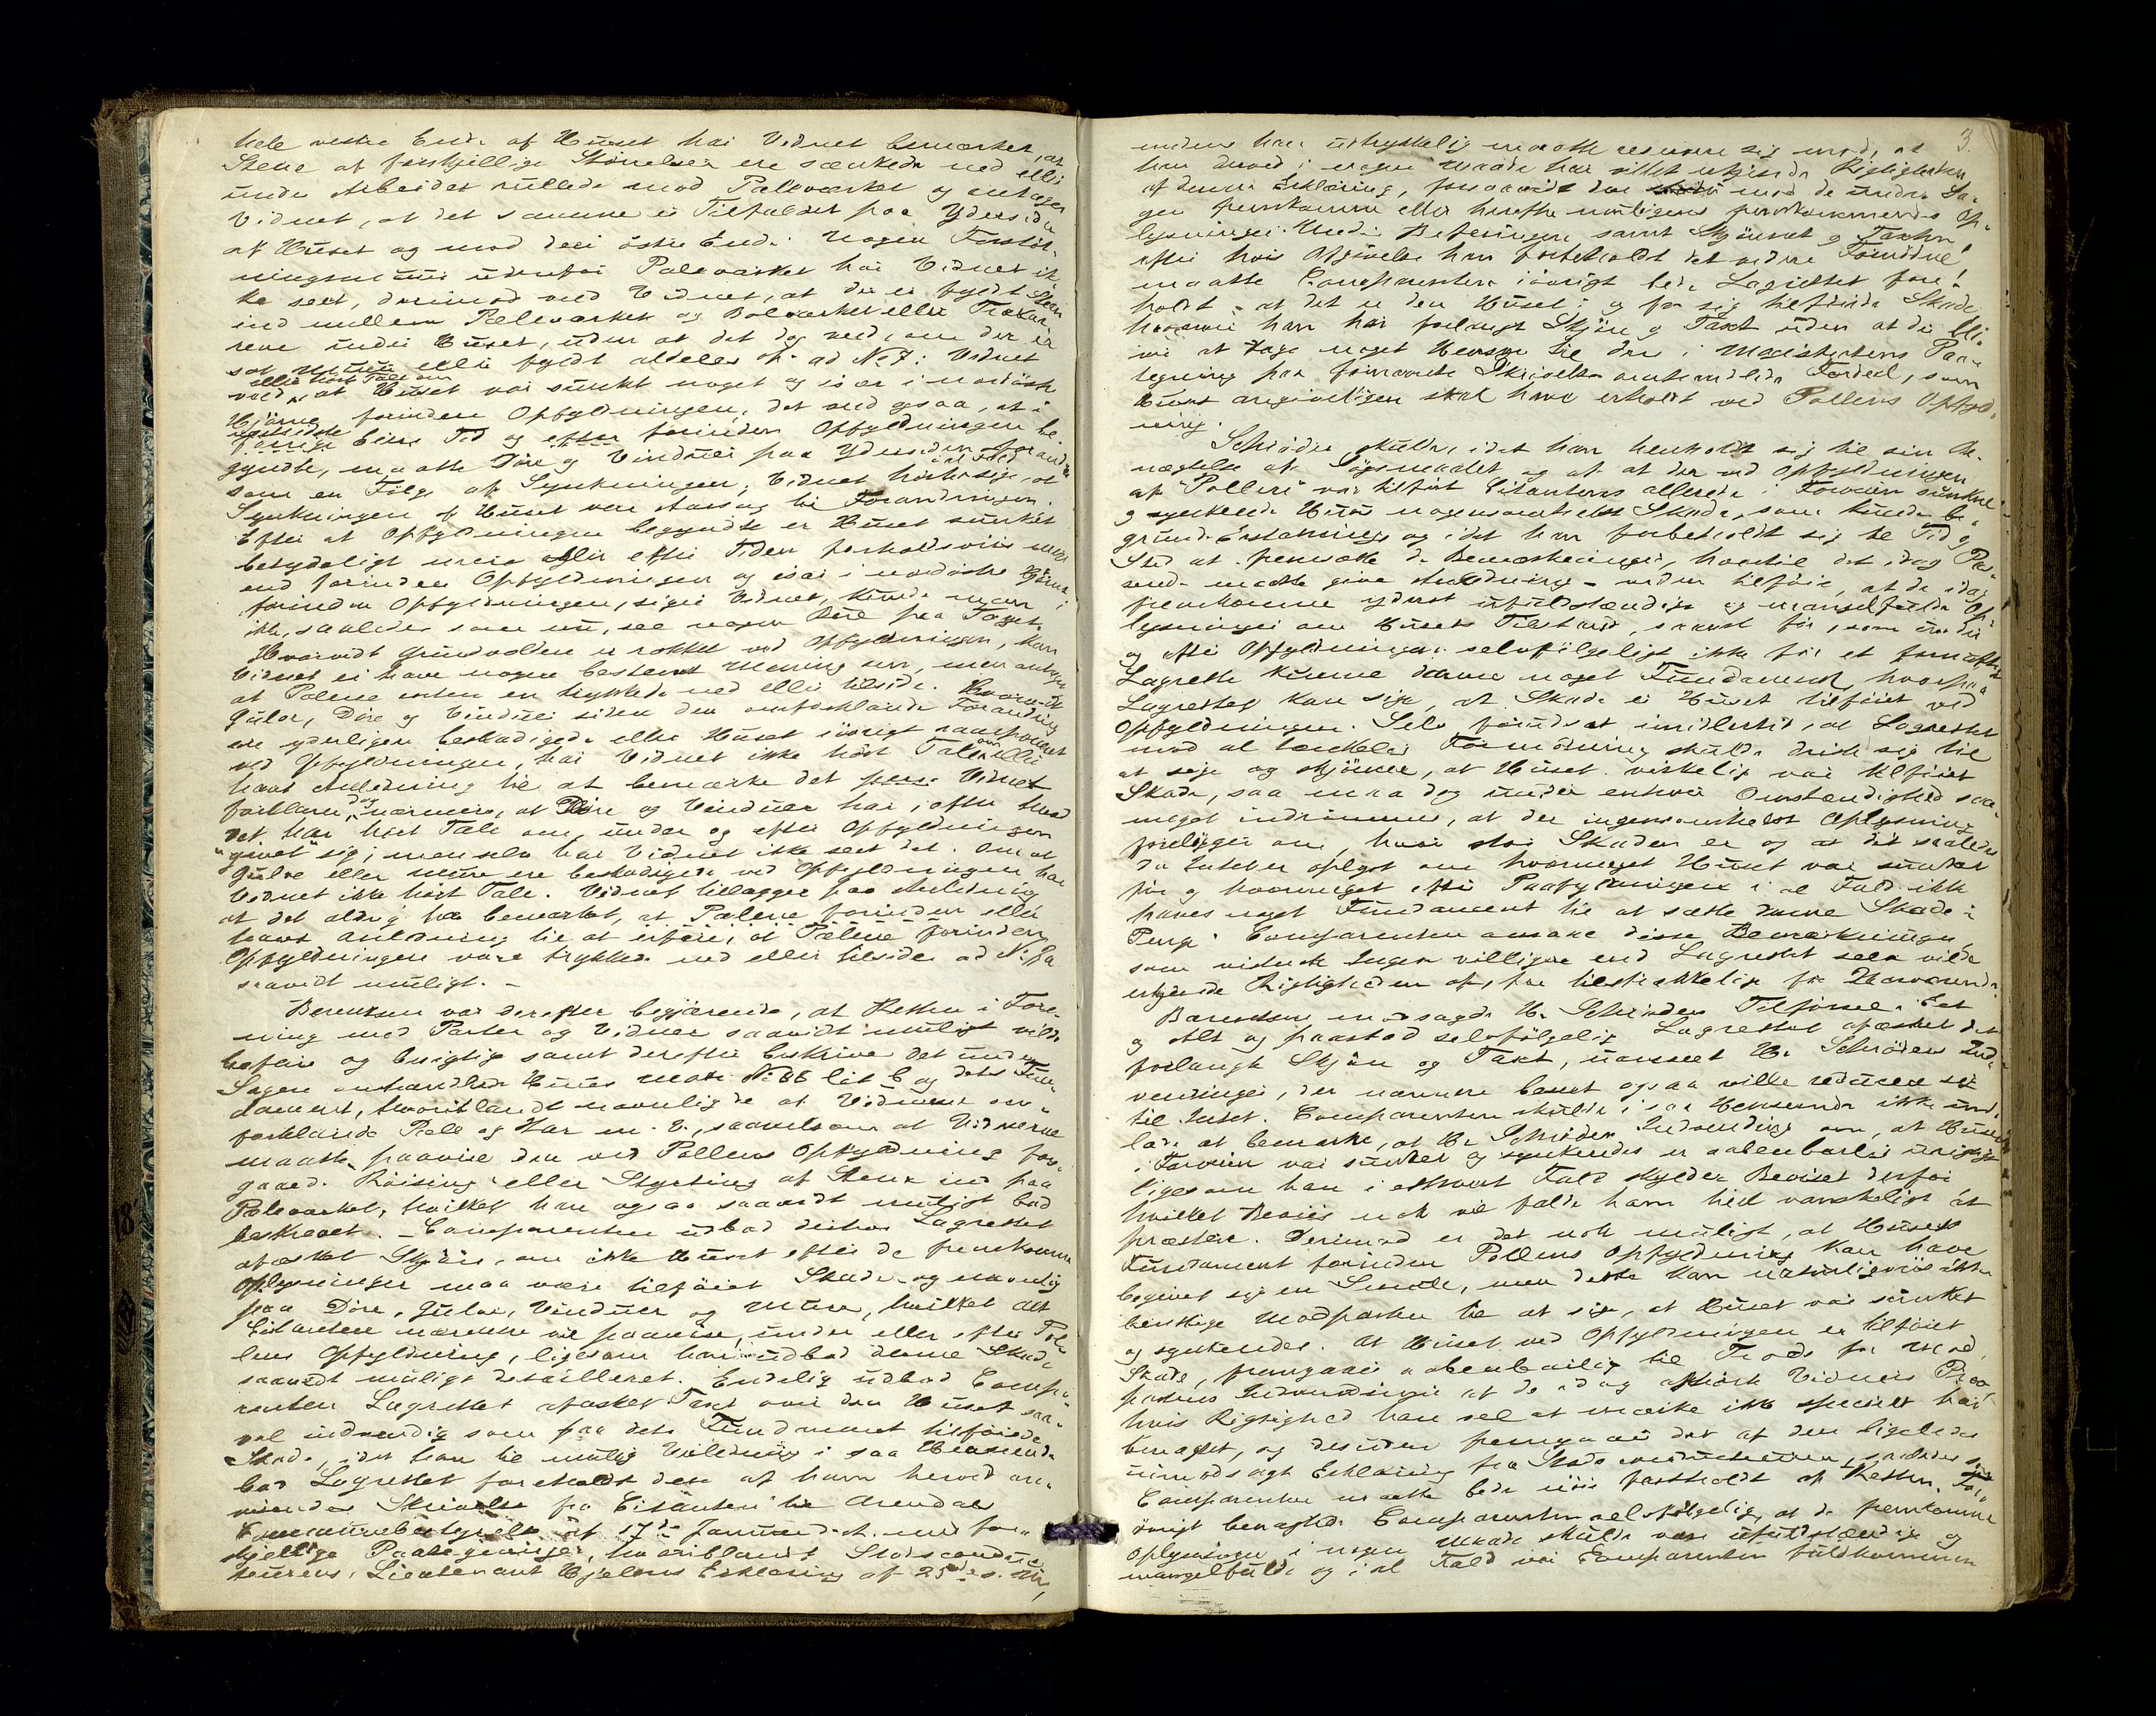 hele vestre Ende af Huset har Vidnet bemærket, at
Stene af forskjellige Størrelser ere sænkede ned eller
under Arbeidet rullede mod Pæleværket og antager
Vidnet, at det samme er Tilfældet paa Ydersiden
af Huset og mod den østre Ende. Nogen Forstøt-
ningsmuur udenfor Pæleværket har Vidnet ik-
ke seet, derimod ved Vidnet, at der er fyldt Steen
ind mellem Pæleværket og Bolværket eller Trækar-
rene under Huset, uden at det dog ved, om der er
sat Muur eller fyldt aldeles op. ad No 7: Vidnet
eller hørt Tale om
ved, at Huset var sunket noget og især i nordøstre
Hjørne forinden Opfyldningen, det ved ogsaa, at i
forrige Eiers Tid og forinden Opfyldningen be-
gyndte, maatte Døre og Vinduer paa Ydersiden forandres
som en Følge af Synkningen; Vidnet hørte sige, at
Synkningen af Huset var Aarsag til Forandringen.
Efter at Opfyldningen begyndte er Huset sunket
betydeligt mere eller efter Tiden forholdsviis mere
end forinden Opfyldningen og især i nordøstre Hjørne;
forinden Opfyldningen, siger Vidnet, kunde man
ikke, saaledes som nu, see nogen Bue paa Taget.
Hvorvidt Grundvolden er rokket ved Opfyldningen, kan
Vidnet ei have nogen bestemt Mening om, men antager
at Pælene enten ere trykkede ned eller tilside. Hvorvidt
Gulve, Døre og Vinduer siden den omforklarede Forandring
ere yderligere beskadigede eller Huset iøvrigt
ved Opfyldningen, har Vidnet ikke hørt Tale om eller
havt Anledning til at bemærke det. Vidnet
forklarer dog nærmere, at Døre og Vinduer har, efter hvad
det har hørt Tale om, under og efter Opfyldningen
"givet" sig; men selv har Vidnet ikke seet det. Om at
Gulve eller Mure ere beskadigede ved Opfyldningen har
Vidnet ikke hørt Tale. Vidnet tillægger paa Anledning
at det aldrig har bemærket, at Pælene forinden eller
havt Anledning til at erfare, at Pælene forinden
Opfyldningen vare trykkede ned eller tilside. ad No 8 Ja
saavidt muligt. —
Berentsen var derefter begjærende, at Retten i Fore-
ning med Parter og Vidner saavidt muligt vilde
befare og besigtige samt derefter beskrive det under
Sagen omhandlede Huus Matr. No 66 lit. b og dets Fun-
dament, hvoriblandt navnlig de af Vidnerne om-
forklarede Pæle og Kar m. v., saavelsom at Vidnerne
maatte paavise den ved Pollens Opfyldning fore-
gaaede Raising eller Styrtning af Stene ind paa
Pæleværket, hvilket han ogsaa saavidt muligt bad
beskrevet. — Comparenten udbad derhos Lagrettet
afæsket Skjøn, om ikke Huset efter de fremkomne
Oplysninger maa være tilføiet Skade og navnlig
paa Døre, Gulve, Vinduer og Mure, hvilket Alt
Citanten nærmere vil paavise, under eller efter Pol-
lens Opfyldning, ligesom han udbad denne Skade
saavidt muligt detailleret. Endelig udbad Compa-
renten Lagrettet afæsket Taxt over den Huset saa-
vel indvendig som paa dets Fundament tilføiede
Skade, idet han til mulig Veiledning i saa Henseende
bad Lagrettet foreholdt den af ham herved
Skrivelse fra Citanten til Arendals
Communebestyrelse af 17de Januar d. A. med for-
skjellige Paategninger, hvoriblandt Stadsconduc-
teurens, Lieutenant Hjelms Erklæring af 25de s. M.,
3.
endens han udtrykkelig maatte reservere sig mod, at
han derved i nogen Maade har villet erkjende Rigtigheden
af denne Erklæring, forsaavidt den mod de under Sa-
gen fremkomne eller herefter muligens fremkommende Op-
lysninger. Under Befaringen samt Skjønnet og Taxten,
efter hvis Afgivelse han forbeholdt det videre Fornødne,
maatte Comparenten iøvrigt bede Lagrettet fore-
holdt, at det er den Huset i og for sig tilføiede Skade,
hvorover han har forlangt Skjøn og Taxt uden at der bli-
ver at tage noget Hensyn til den i Magistratens Paa-
tegning paa fornævnte Skrivelse omhandlede Fordeel, som
Huset angiveligen skal have erholdt ved Pollens Opfyld-
ning.
Schrøder skulde, idet han henholdt sig til sin Be-
nægtelse af Søgsmaalet og af at der ved Opfyldningen
af "Pollen" var tilført Citantens allerede i Forveien sunkne
og synkende Huus nogensomhelst Skade, som kunde be-
grunde Erstatning, og idet han forbeholdt sig til Tid og
Sted at fremsætte de Bemærkninger, hvortil det idag Pas-
serede maatte give Anledning — videre tilføie, at de idag
fremkomne yderst ufuldstændige og mangelfulde Op-
lysninger om Husets Tilstand, saavel før, som under
og efter Opfyldningen selvfølgeligt ikke for et fornuftigt
Lagrette kunne danne noget Fundament, hvorpaa
Lagrettet kan sige, at Skade er Huset tilføiet ved
Opfyldningen. Selv forudsat imidlertid, at Lagrettet
mod al tænkelig Formodning skulde driste sig til
at sige og skjønne, at Huset virkelig var tilføiet
Skade, saa maa dog under enhver Omstændighed saa-
meget indrømmes, at der ingensomhelst Oplysning
foreligger om, hvor stor Skaden er og at det saaledes
da Intet er oplyst om hvormeget Huset var sunket
før og hvormeget efter Paafyldningen i al Fald ikke
haves noget Fundament til at sætte denne Skade i
Penge. Comparenten ansaae disse Bemærkninger,
som vistnok Ingen villigere end Lagrettet selv vilde
erkjende Rigtigheden af, for tilstrækkelige for Nærværende.
Berentsen modsagde Hr. Schrøders Tilførsel i Eet
og Alt og paastod selvfølgelig Lagrettet afæsket det
forlangte Skjøn og Taxt, uanseet Hr. Schrøders Ind-
vendinger, der nærmere beseet ogsaa ville reducere sig
til Intet. Comparenten skulde i saa Henseende ikke und-
lade at bemærke, at Hr. Schrøders Indvending om, at Huset
i Forveien var sunket og synkendes er aabenbarlig urigtig,
ligesom han i ethvert Fald skylder Beviset derfor
hvilket Beviis nok vil falde ham lidt vanskeligt at
præstere. Derimod er det nok muligt, at Husets
Fundament forinden Pollens Opfyldning kan have
begivet sig en Smule, men dette kan naturligviis ikke
berettige Modparten til at sige, at Huset var sunket
og synkendes. At Huset ved Opfyldningen er tilføiet
Skade, fremgaaer aabenbarlig til Trods for Mod-
partens Indvendinger af de idag afhørte Vidners Prov,
hvis Rigtighed han vel at mærke ikke specielt har
benægtet, og desuden fremgaaer det af den ligeledes
uimodsagte Erklæring fra Stadsconducteuren, saaledes som
Comparenten maatte bede noie fastholdt af Retten. For-
øvrigt benægtede Comparenten selvfølgelig, at de fremkomne
Oplysninger i nogen Maade skulde være ufuldstændige og
mangelfulde og i al Fald var Comparenten fuldkommen